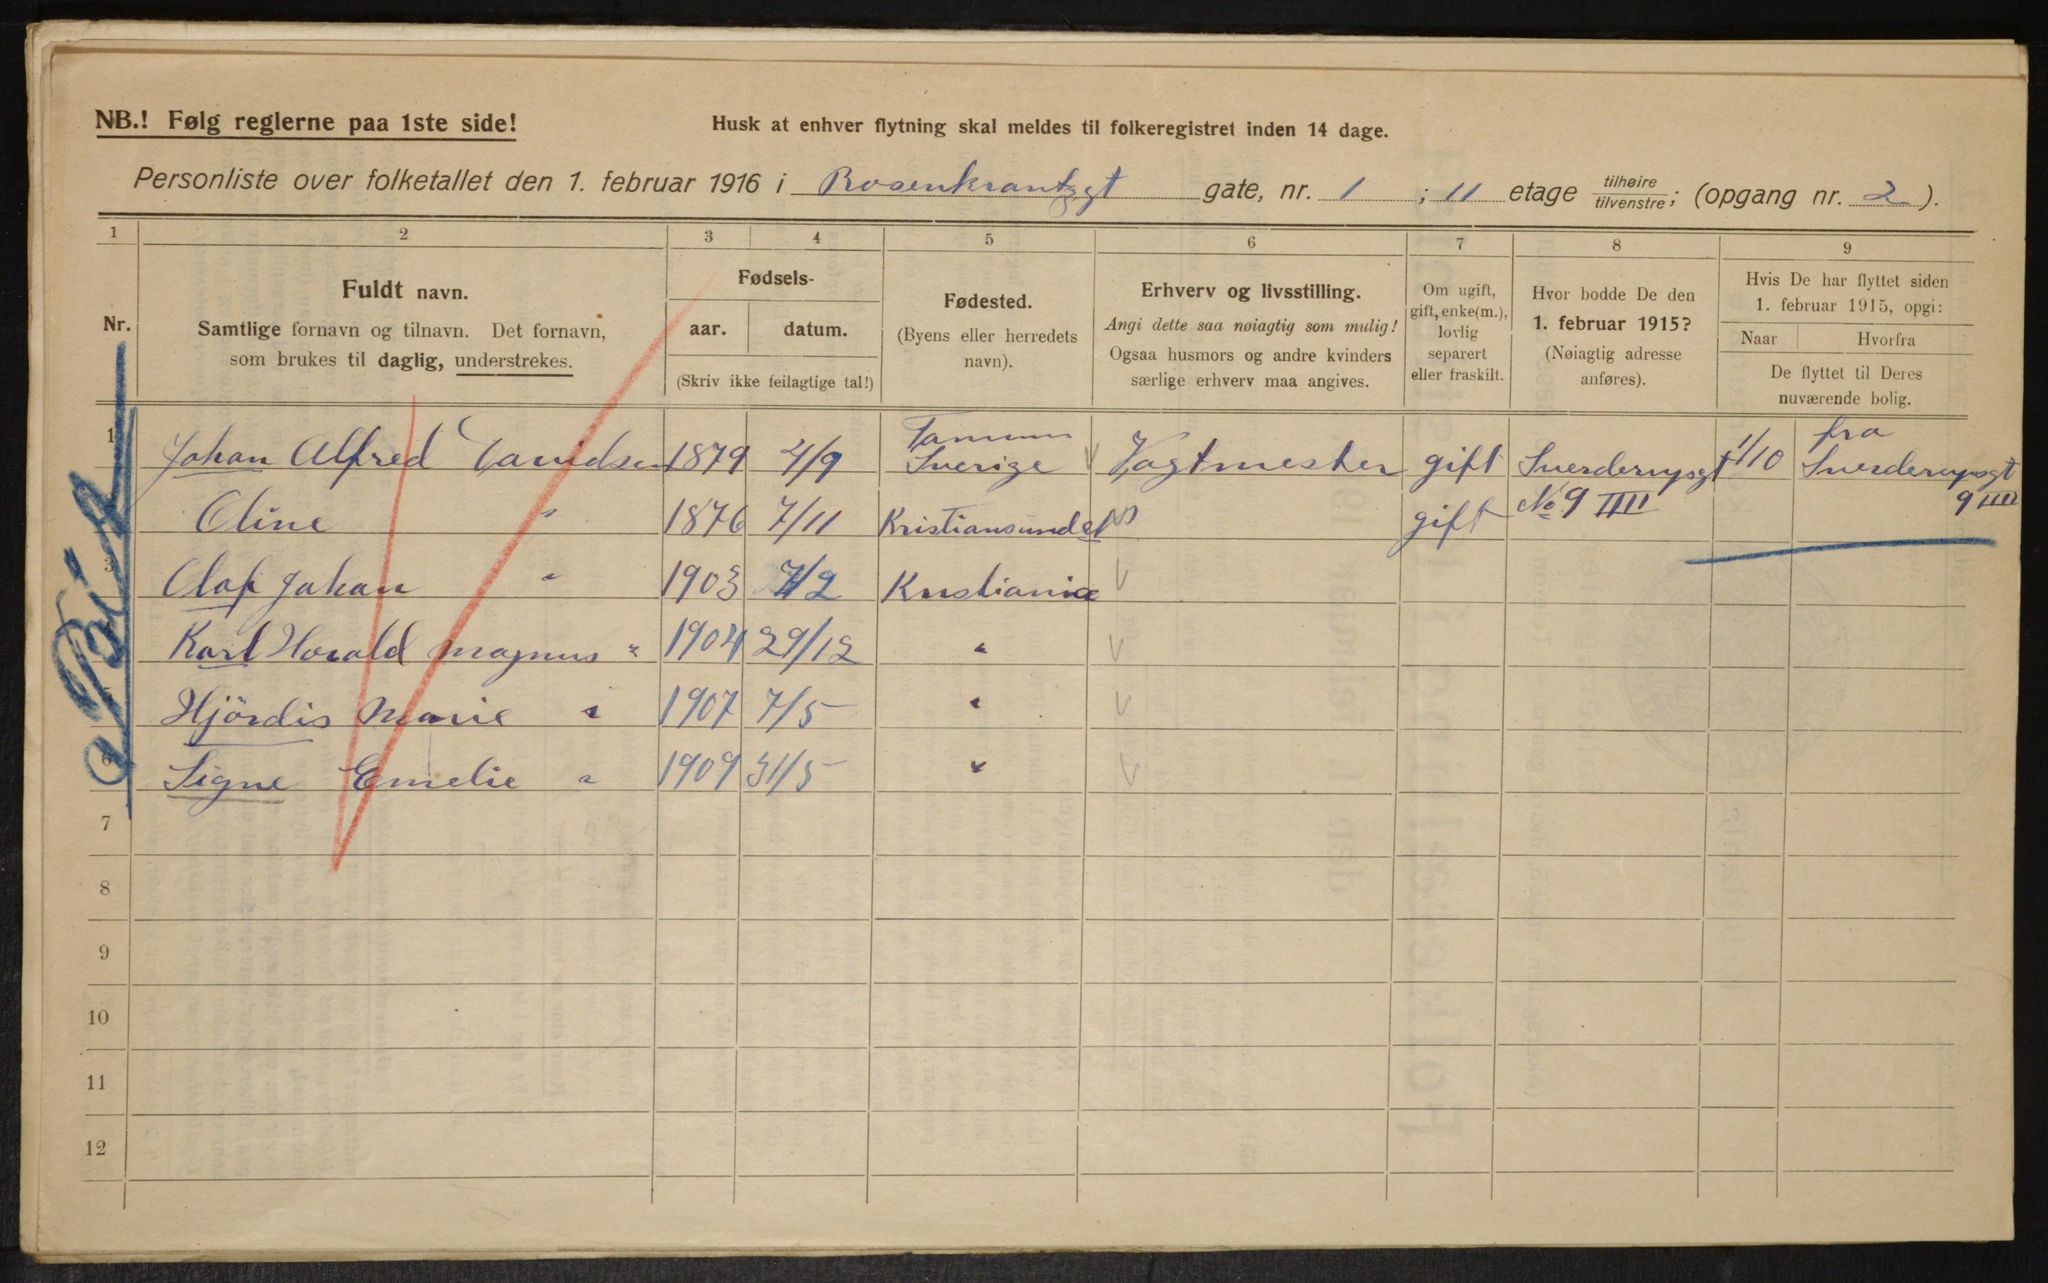 NB.! Følg reglerne paa 1ste side!
Husk at enhver flytning skal meldes til folkeregistret inden 14 dage.
Personliste over folketallet den 1. februar 1916 i Rosenkrantzgt gate, nr. 1 ; 11 etage tilhøire tilvenstre; (opgang nr. 2).
1 2 3 4 5 6 7 8 9
Nr.
Fuldt navn.
Samtlige fornavn og tilnavn. Det fornavn,
som brukes til daglig, understrekes.
Fødsels-
aar. datum.
(Skriv ikke feilagtige tal!)
Fødested.
(Byens eller herredets
navn).
Erhverv og livsstilling.
Angi dette saa nøiagtig som mulig!
Ogsaa husmors og andre kvinders
særlige erhverv maa angives.
Om ugift,
gift, enke(m.),
lovlig
separert
eller fraskilt.
Hvor bodde De den
1. februar 1915?
(Nøiagtig adresse
anføres).
Hvis De har flyttet siden
1. februar 1915, opgi:
Naar Hvorfra
De flyttet til Deres
nuværende bolig.
Tanum fra
1 Johan Alfred Davidsen 1879 4/9 Sverige Vagtmester gift Sverderupsgt 1/10 Sverderupsgt
No 9 IIII 9 IIII
Oline " 1876 7/11 Kristiansund gift
3 Olaf Johan " 1903 7/2 Kristiania
Karl Harald Magnus " 1904 29/12 "
Hjördis Marie " 1907 7/5 "
6 Signe Emelie " 1909 31/5 "
7
8
9
10
11
12